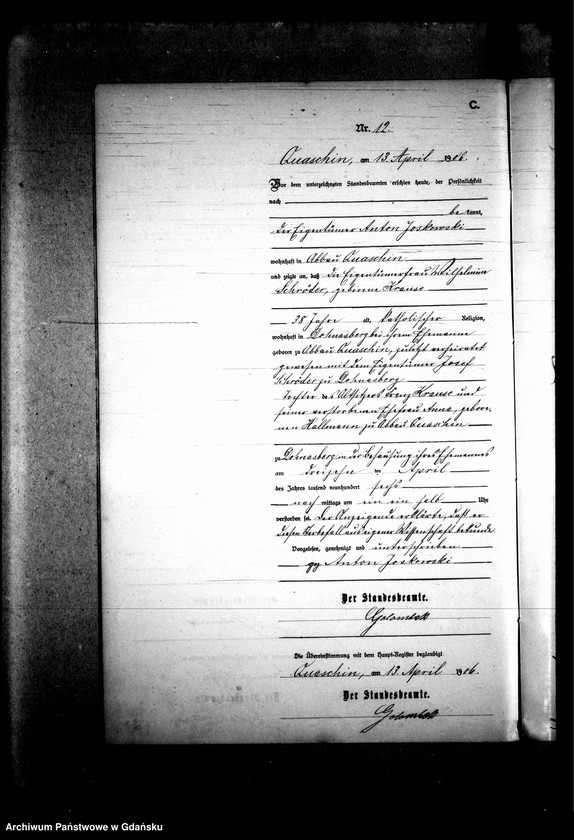 C.
Nr. 12.
Quaschin, am 13. April 1906.
Vor dem unterzeichneten Standesbeamten erschien heute, der Persönlichkeit
nach
be kannt,
der Eigentümer Anton Joskowski
wohnhaft in Abbau Quaschin
und zeigte an, daß die Eigentümerfrau Wilhelmine
Schröder, geborene Krause
38 Jahre alt, katholischer Religion,
wohnhaft in Dohnasberg bei ihrem Ehemanne
geboren zu Abbau Quaschin, zuletzt verheiratet
gewesen mit dem Eigentümer Josef
Schröder zu Dohnasberg
Tochter des Altsitzers Franz Krause und
seiner verstorbenen Ehefrau Anna, gebore-
nen Hallmann zu Abbau Quaschin
zu Dohnasberg in der Behausung ihres Ehemannes
am dreizehn ten April
des Jahres tausend neunhundert sechs
nach mittags um ein ein halb Uhr
verstorben sei. Der Anzeigende erklärte, dass er
diesen Sterbefall aus eigener Wissenschaft bekunde.
Vorgelesen, genehmigt und unterschrieben
gz Anton Joskowski
Der Standesbeamte.
Golombek
Die Übereinstimmung mit dem Haupt-Register beglaubigt
Quaschin, am 13. April 1906.
Der Standesbeamte.
Golombek
Archiwum Państwowe w Gdańsku